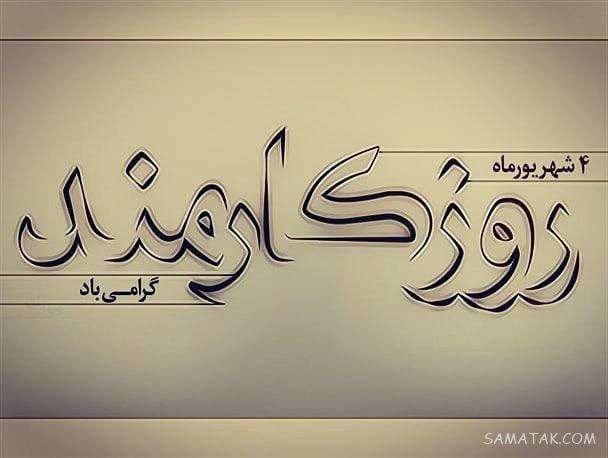 ۴ شهریورماه
روز کارمند
گرامی باد
SAMATAK.COM